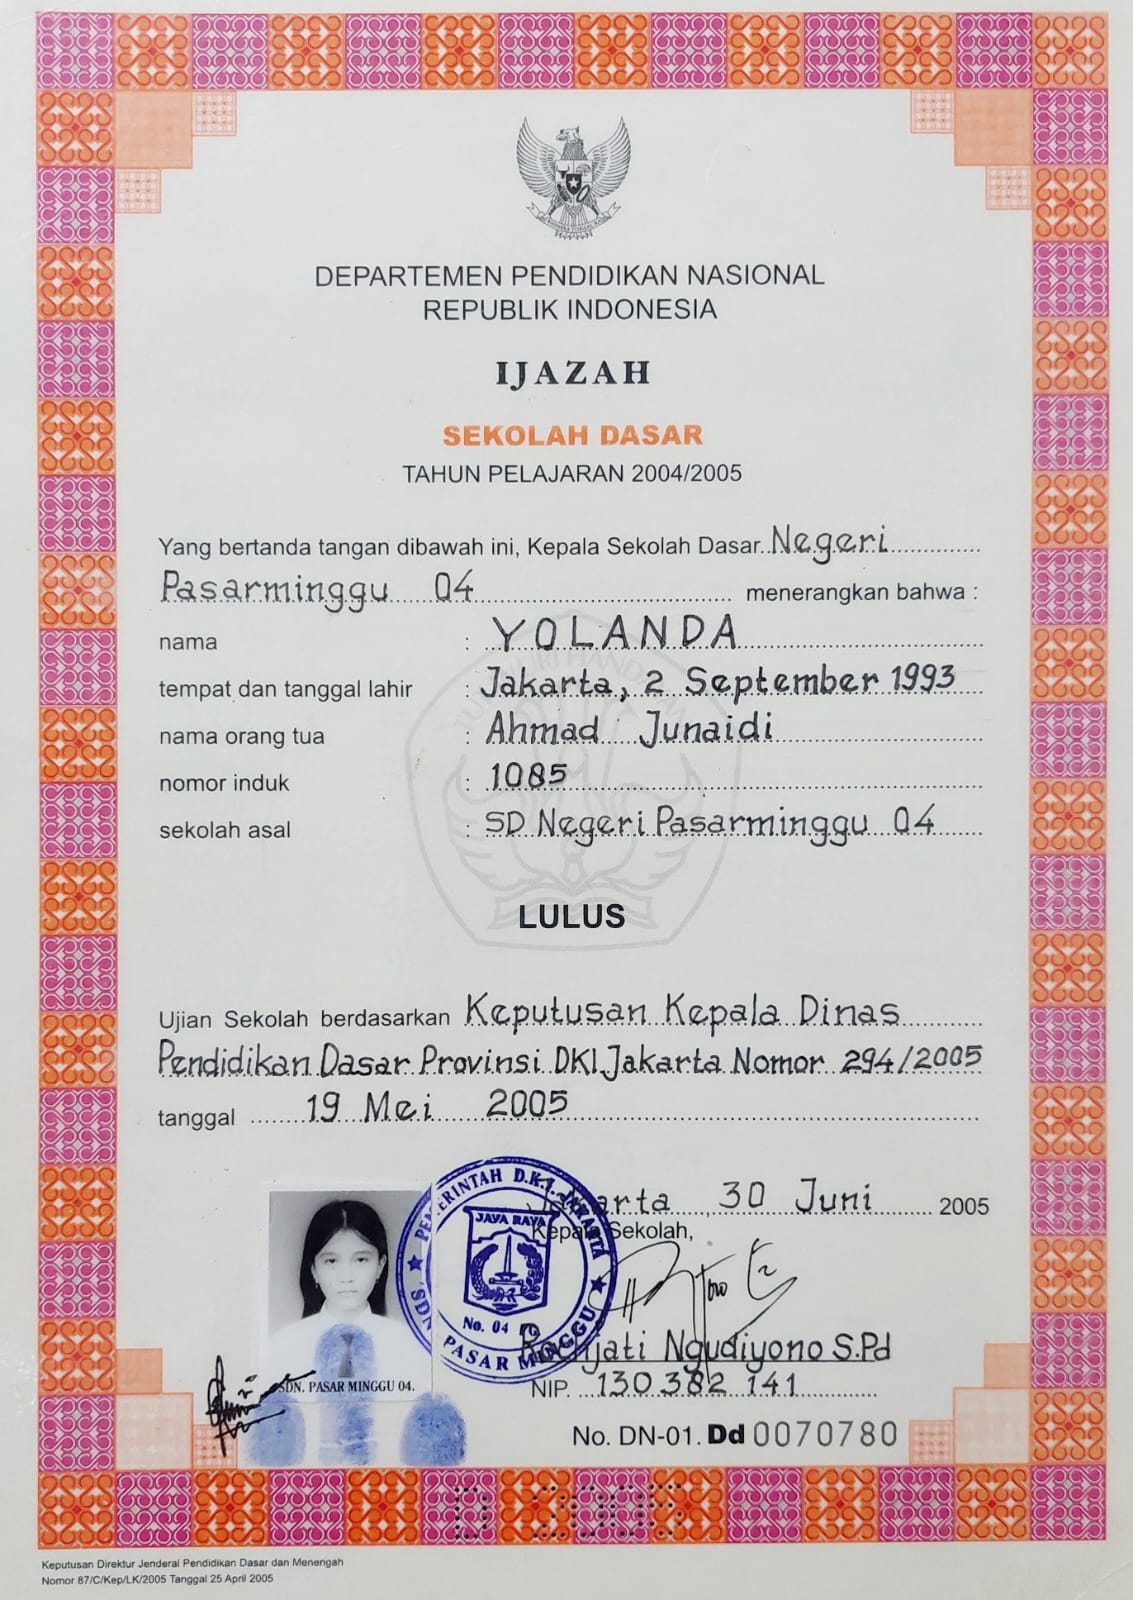 DEPARTEMEN PENDIDIKAN NASIONAL
REPUBLIK INDONESIA
IJAZAH
SEKOLAH DASAR
TAHUN PELAJARAN 2004/2005
Yang bertanda tangan dibawah ini, Kepala Sekolah Dasar Negeri
Pasarminggu 04 menerangkan bahwa :
nama : YOLANDA
tempat dan tanggal lahir : Jakarta, 2 September 1993
nama orang tua : Ahmad Junaidi
nomor induk : 1085
sekolah asal : SD Negeri Pasarminggu 04
LULUS
Ujian Sekolah berdasarkan Keputusan Kepala Dinas
Pendidikan Dasar Provinsi DKI Jakarta Nomor 294/2005
tanggal 19 Mei 2005
Jakarta, 30 Juni 2005
Kepala Sekolah,
PEMERINTAH D.K.I. JAKARTA
JAYA RAYA
No. 04 PG
SDN. PASAR MINGGU
Ngudiyono S.Pd
NIP. 130 382 141
SDN. PASAR MINGGU 04.
No. DN-01. Dd 0070780
D 2005
Keputusan Direktur Jenderal Pendidikan Dasar dan Menengah
Nomor 87/C/Kep/LK/2005 Tanggal 25 April 2005